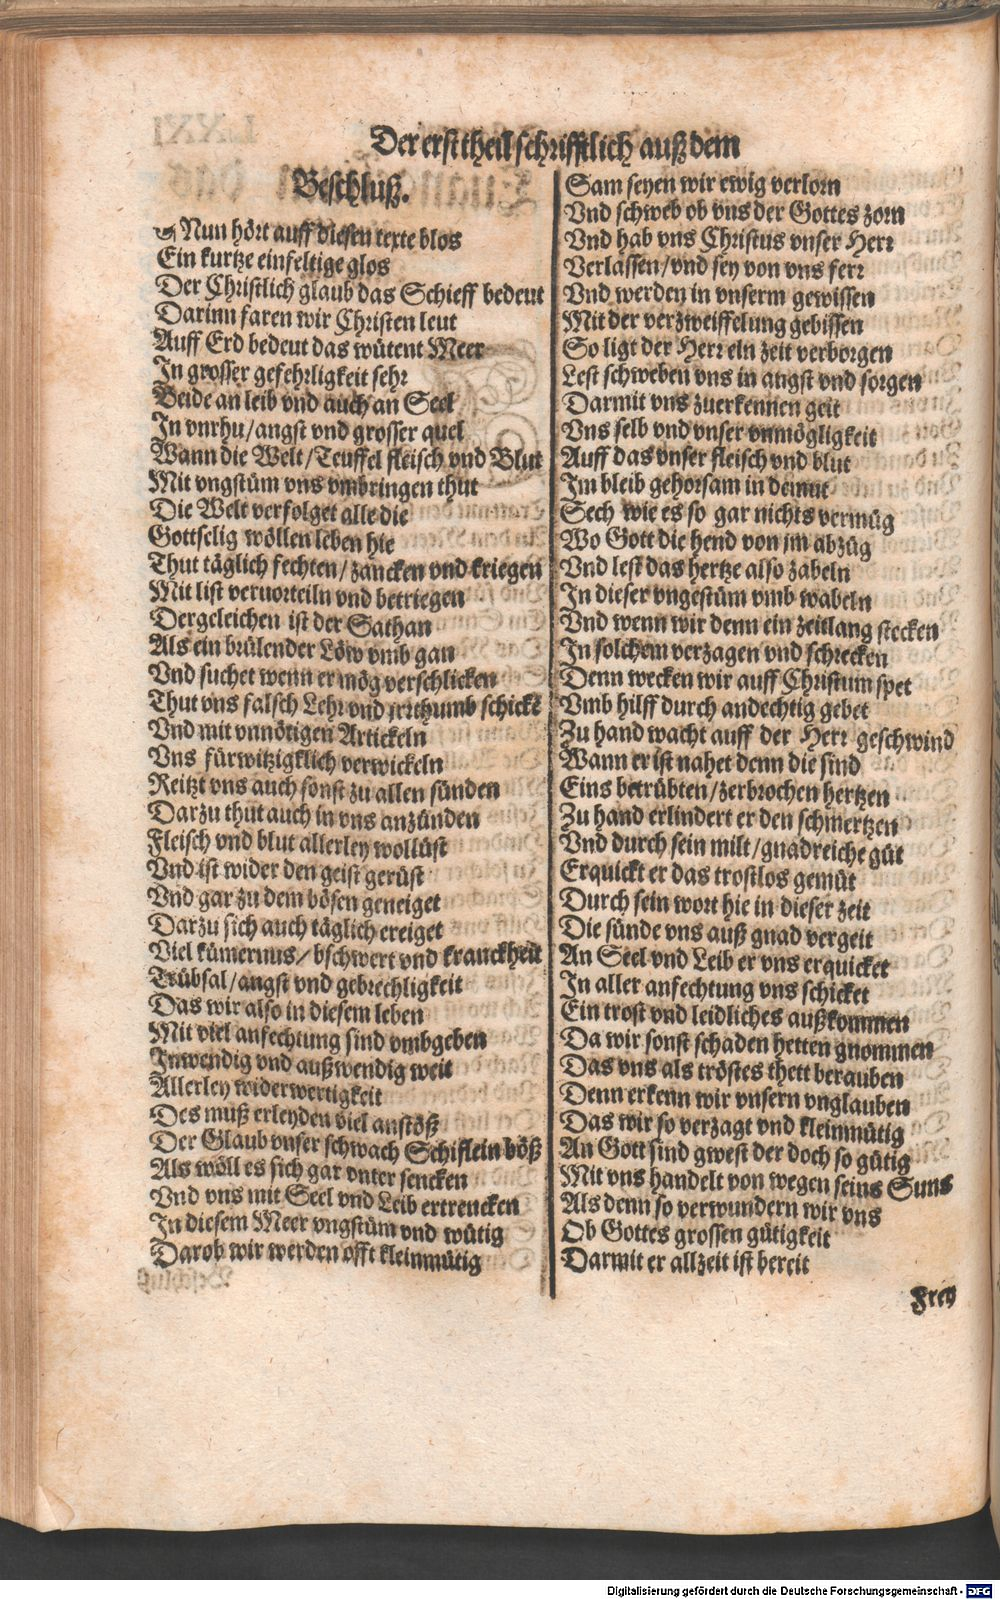 Der erst theil schrifftlich auß dem
Beschluß.
Nun hört auff diesen texte blos
Ein kurtze einfeltige glos
Der Christlich glaub das Schieff bedeut
Darinn faren wir Christen leut
Auff Erd bedeut das wütent Meer
In grosser gefehrligkeit sehr
Beide an leib vnd auch an Seel
In vnrhu/angst vnd grosser quel
Wann die Welt/Teuffel fleisch vnd Blut
Mit vngstüm vns vmbringen thut
Die Welt verfolget alle die
Gottselig wöllen leben hie
Thut täglich fechten/zancken vnd kriegen
Mit list veruorteiln vnd betriegen
Dergeleichen ist der Sathan
Als ein brülender Löw vmb gan
Vnd suchet wenn er mög verschlicken
Thut vns falsch Lehr vnd jrrthumb schickẽ
Vnd mit vnnötigen Artickeln
Vns fürwitzigklich verwickeln
Reitzt vns auch sonst zu allen sünden
Darzu thut auch in vns anzünden
Fleisch vnd blut allerley wollüst
Vnd ist wider den geist gerüst
Vnd gar zu dem bösen geneiget
Darzu sich auch täglich ereiget
Viel kümernus/bschwert vnd kranckheit
Trübsal/angst vnd gebrechligkeit
Das wir also in diesem leben
Mit viel anfechtung sind vmbgeben
Inwendig vnd außwendig weit
Allerley widerwertigkeit
Des muß erleyden viel anstöß
Der Glaub vnser schwach Schiflein böß
Als wöll es sich gar vnter sencken
Vnd vns mit Seel vnd Leib ertrencken
In diesem Meer vngstüm vnd wütig
Darob wir werden offt kleinmütig
Sam seyen wir ewig verlorn
Vnd schweb ob vns der Gottes zorn
Vnd hab vns Christus vnser Herr
Verlassen/vnd sey von vns ferr
Vnd werden in vnserm gewissen
Mit der verzweiffelung gebissen
So ligt der Herr ein zeit verborgen
Lest schweben vns in angst vnd sorgen
Darmit vns zuerkennen geit
Vns selb vnd vnser vnmögligkeit
Auff das vnser fleisch vnd blut
Im bleib gehorsam in demut
Sech wie es so gar nichts vermüg
Wo Gott die hend von jm abzüg
Vnd lest das hertze also zabeln
In dieser vngestüm vmb wabeln
Vnd wenn wir denn ein zeitlang stecken
In solchem verzagen vnd schrecken
Denn wecken wir auff Christum spet
Vmb hilff durch andechtig gebet
Zu hand wacht auff der Herr geschwind
Wann er ist nahet denn die sind
Eins betrübten/zerbrochen hertzen
Zu hand erlindert er den schmertzen
Vnd durch sein milt/gnadreiche güt
Erquickt er das trostlos gemüt
Durch sein wort hie in dieser zeit
Die sünde vns auß gnad vergeit
An Seel vnd Leib er vns erquicket
In aller anfechtung vns schicket
Ein trost vnd leidliches außkommen
Da wir sonst schaden hetten gnommen
Das vns als tröstes thett berauben
Denn erkenn wir vnsern vnglauben
Das wir so verzagt vnd kleinmütig
An Gott sind gwest der doch so gütig
Mit vns handelt von wegen seins Suns
Als denn so verwundern wir vns
Ob Gottes grossen gütigkeit
Darmit er allzeit ist bereit
Frey
Digitalisierung gefördert durch die Deutsche Forschungsgemeinschaft - DFG